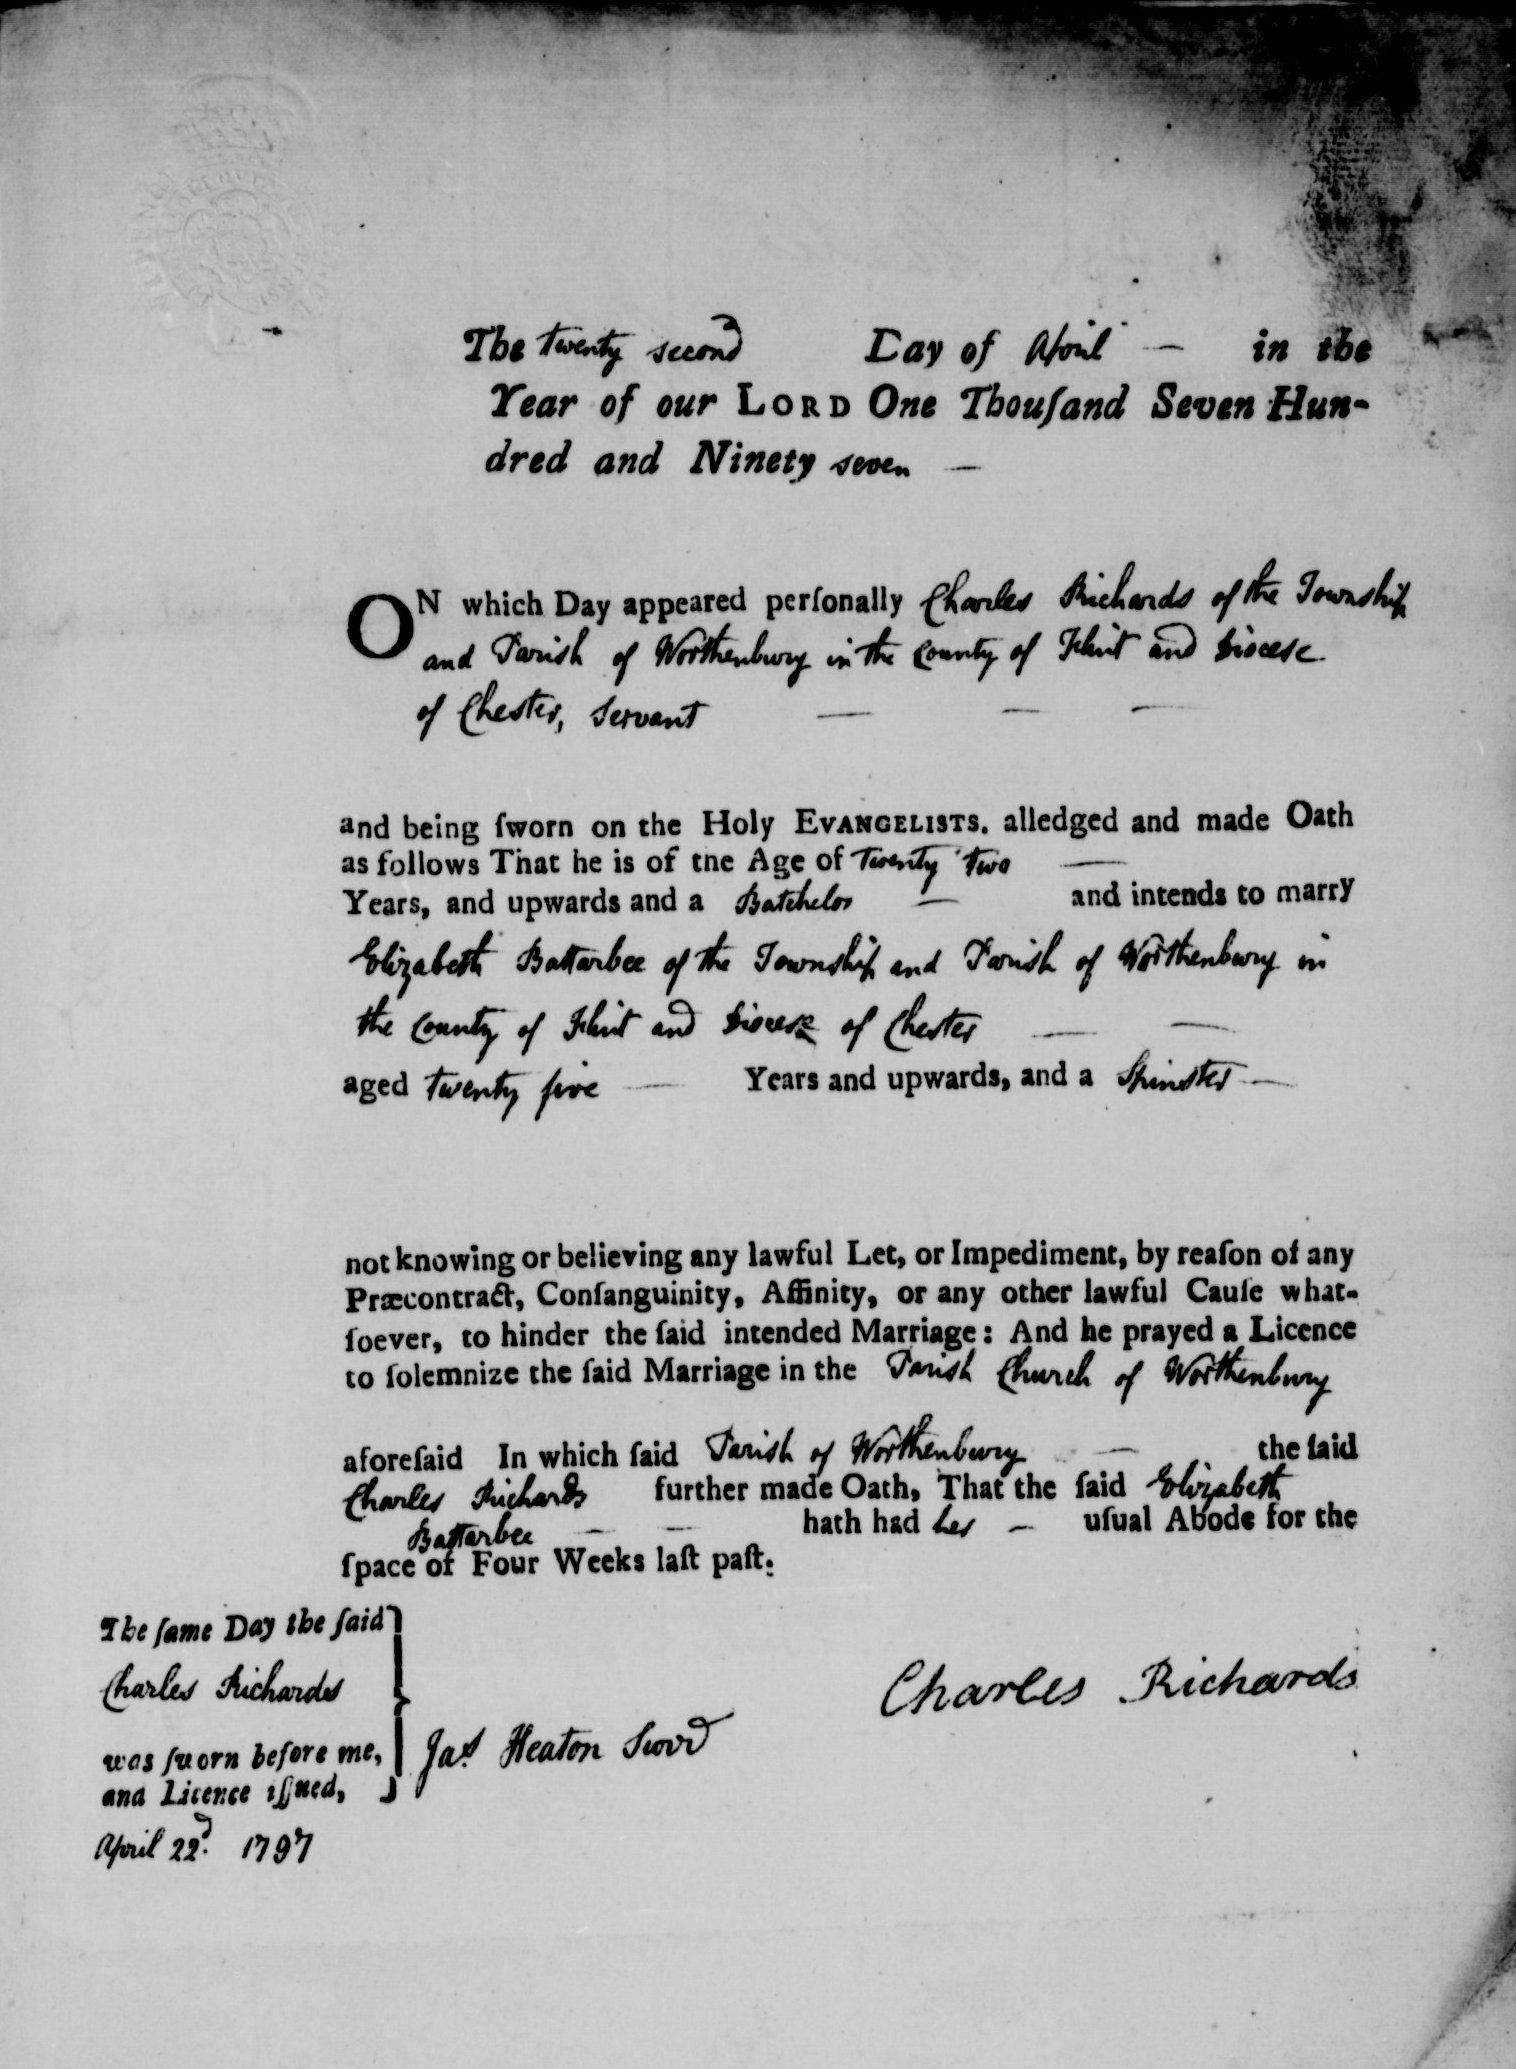 The twenty second Day of April — in the
Year of our LORD One Thouſand Seven Hun-
dred and Ninety seven —
ON which Day appeared perſonally Charles Richards of the Township
and Parish of Worthenbury in the County of Flint and Diocese
of Chester, Servant — — —
and being ſworn on the Holy EVANGELISTS. alledged and made Oath
as follows That he is of the Age of Twenty Two —
Years, and upwards and a Batchelor — and intends to marry
Elizabeth Battarbee of the Township and Parish of Worthenbury in
the County of Flint and Diocese of Chester — —
aged twenty five — Years and upwards, and a Spinster —
not knowing or believing any lawful Let, or Impediment, by reaſon of any
Præcontract, Conſanguinity, Affinity, or any other lawful Cauſe what-
ſoever, to hinder the ſaid intended Marriage: And he prayed a Licence
to ſolemnize the ſaid Marriage in the Parish Church of Worthenbury
aforeſaid In which ſaid Parish of Worthenbury — the ſaid
Charles Richards further made Oath, That the ſaid Elizabeth
Battarbee — — hath had her — uſual Abode for the
ſpace of Four Weeks laſt paſt.
The ſame Day the ſaid
Charles Richards
was ſworn before me,
and Licence iſſued,
April 22d. 1797
Jas. Heaton Surrd
Charles Richards